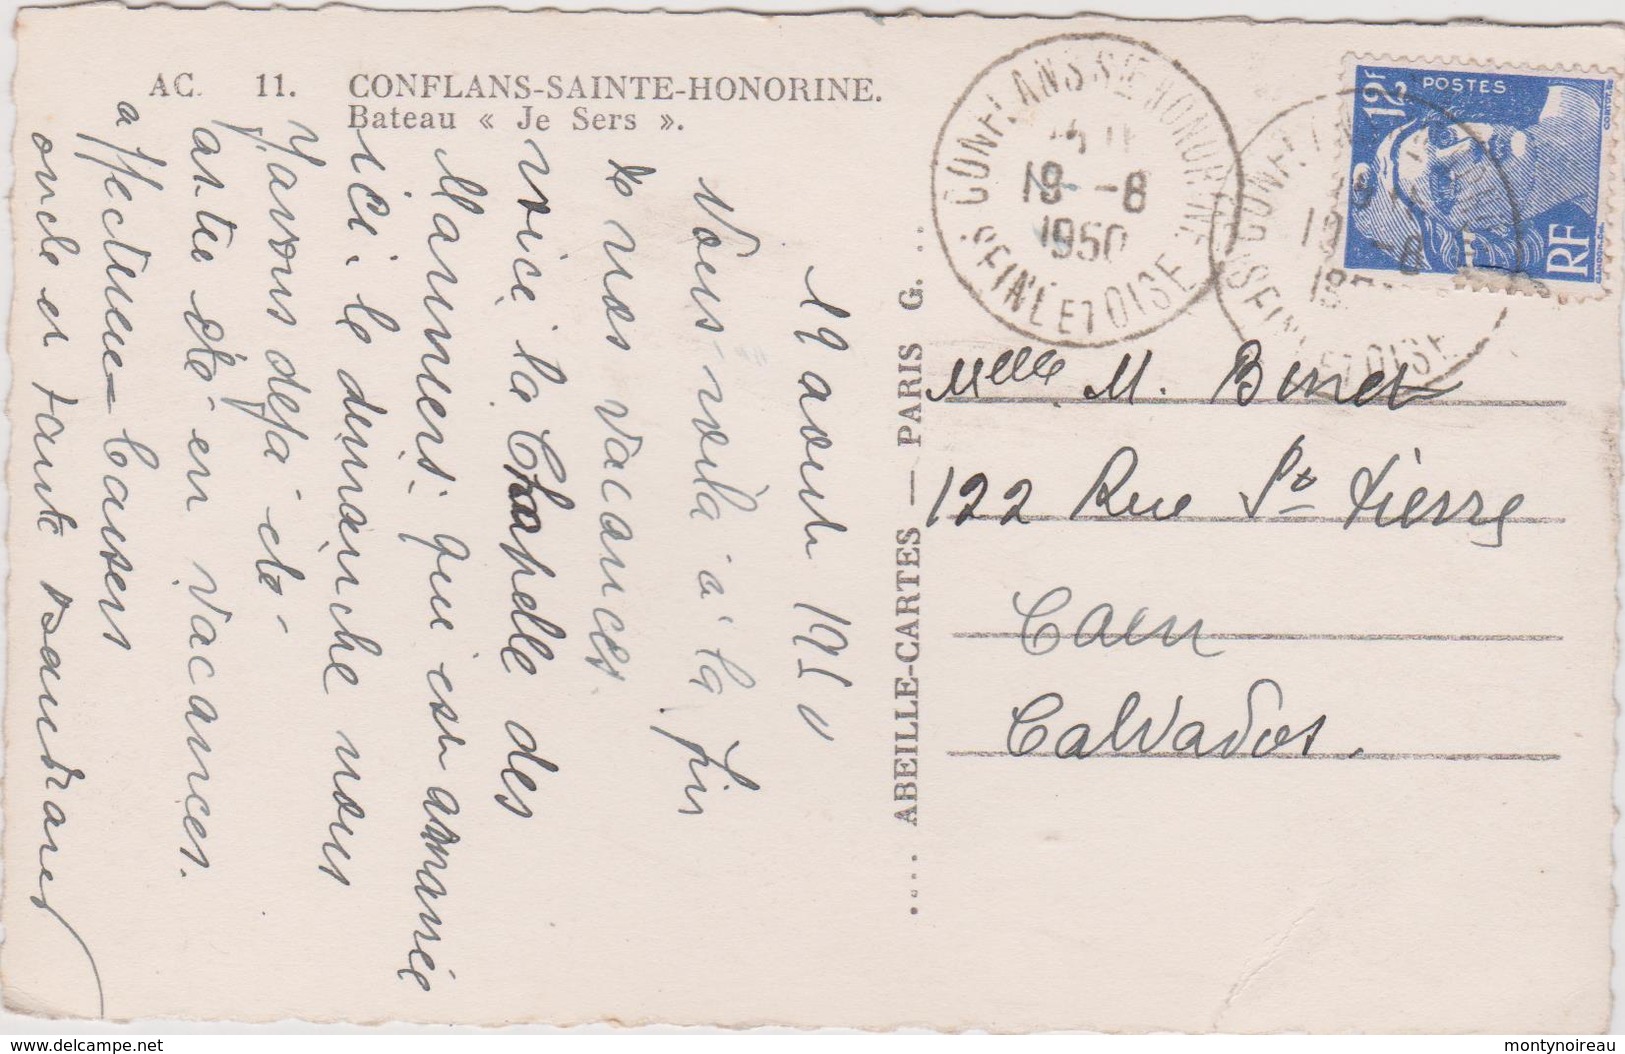 AC. 11. CONFLANS-SAINTE-HONORINE.
Bateau « Je Sers ».
19 août 1950
Vous voilà à la fin
de nos vacances.
voici la Chapelle des
Mariniers que est amarrée
ici. le dimanche nous
y avons déjà été
antée été en vacances.
affectueux baisers
oncle et tante
.... ABEILLE-CARTES — PARIS G. ..
CONFLANS STE HONORINE
19 -8
1950
SEINE ET OISE
POSTES
12F
RF
Melle M. Binet
122 Rue St Pierre
Caen
Calvados.
www.delcampe.net
montynoireau